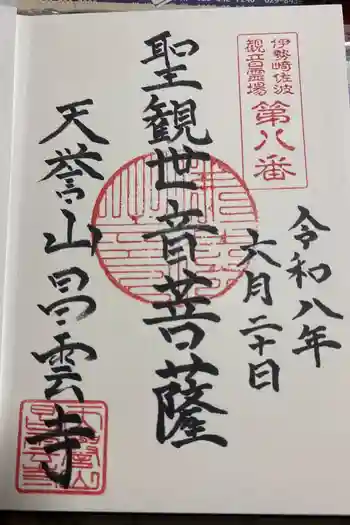 伊勢崎佐波
観音霊場
第八番
令和八年
六月二十日
聖観世音菩薩
天誉山昌雲寺